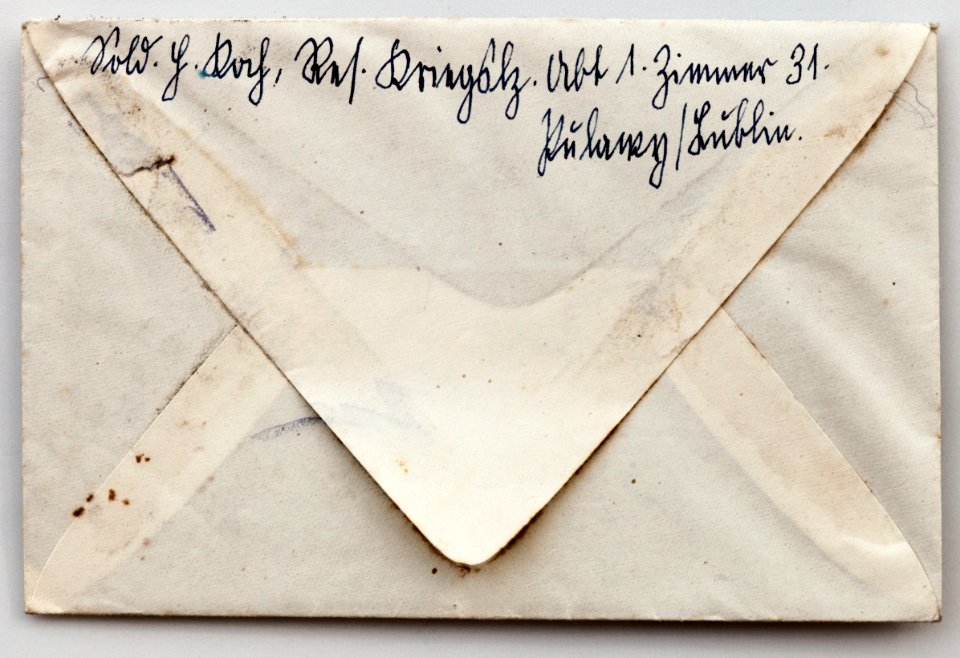 Sold. H. Koch, Res. Kriegslz. Abt 1. Zimmer 31.
Pulawy/Lublin.